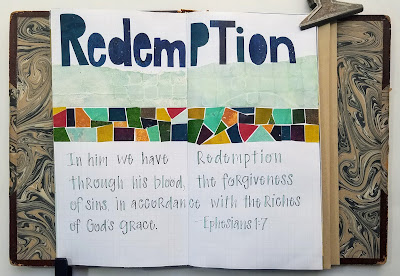 Redemption
In him we have Redemption
through his blood, the forgiveness
of sins, in accordance with the Riches
of God's grace. - Ephesians 1:7